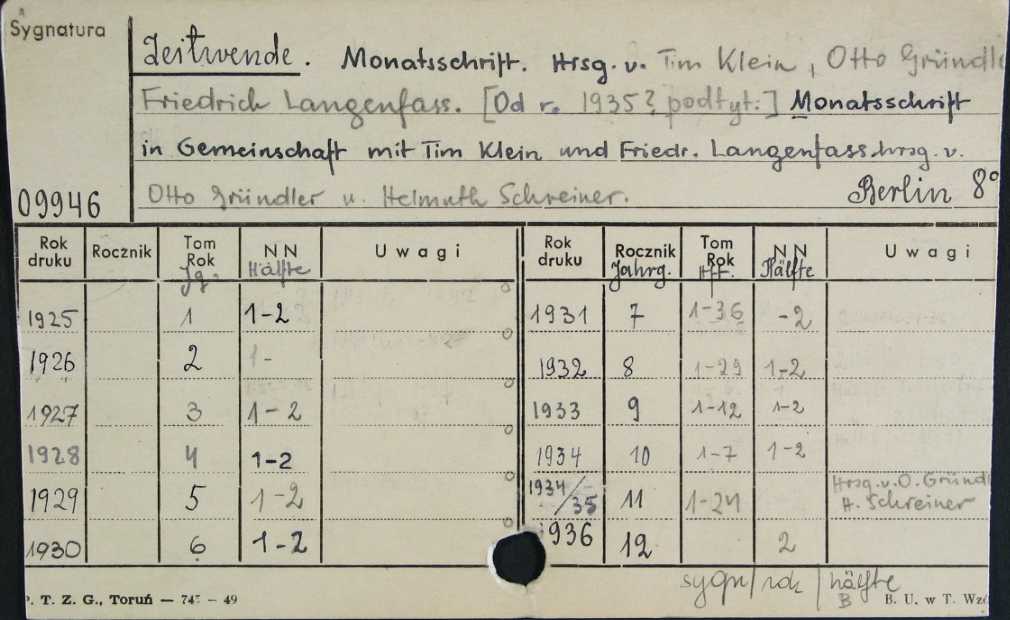 Sygnatura
Zeitwende. Monatsschrift. Hrsg. v. Tim Klein, Otto Gründle
Friedrich Langenfass. [Od r. 1935? podtyt:] Monatsschrift
in Gemeinschaft mit Tim Klein und Friedr. Langenfass hrsg. v.
09946 Otto Gründler u. Helmuth Schreiner. Berlin 8°
Rok druku Rocznik Tom Rok Jg. NN Hälfte Uwagi Rok druku Rocznik Jahrg. Tom Rok Hft. NN Hälfte Uwagi
1925 1 1-2 1931 7 1-36 -2
1926 2 1- 1932 8 1-29 1-2
1927 3 1-2 1933 9 1-12 1-2
1928 4 1-2 1934 10 1-7 1-2
1929 5 1-2 1934/35 11 1-24 Hrsg. v. O. Gründl H. Schreiner
1930 6 1-2 1936 12 2
sygn/rok/hälfte
B
P. T. Z. G., Toruń — 745 - 49 B. U. w T. Wzó